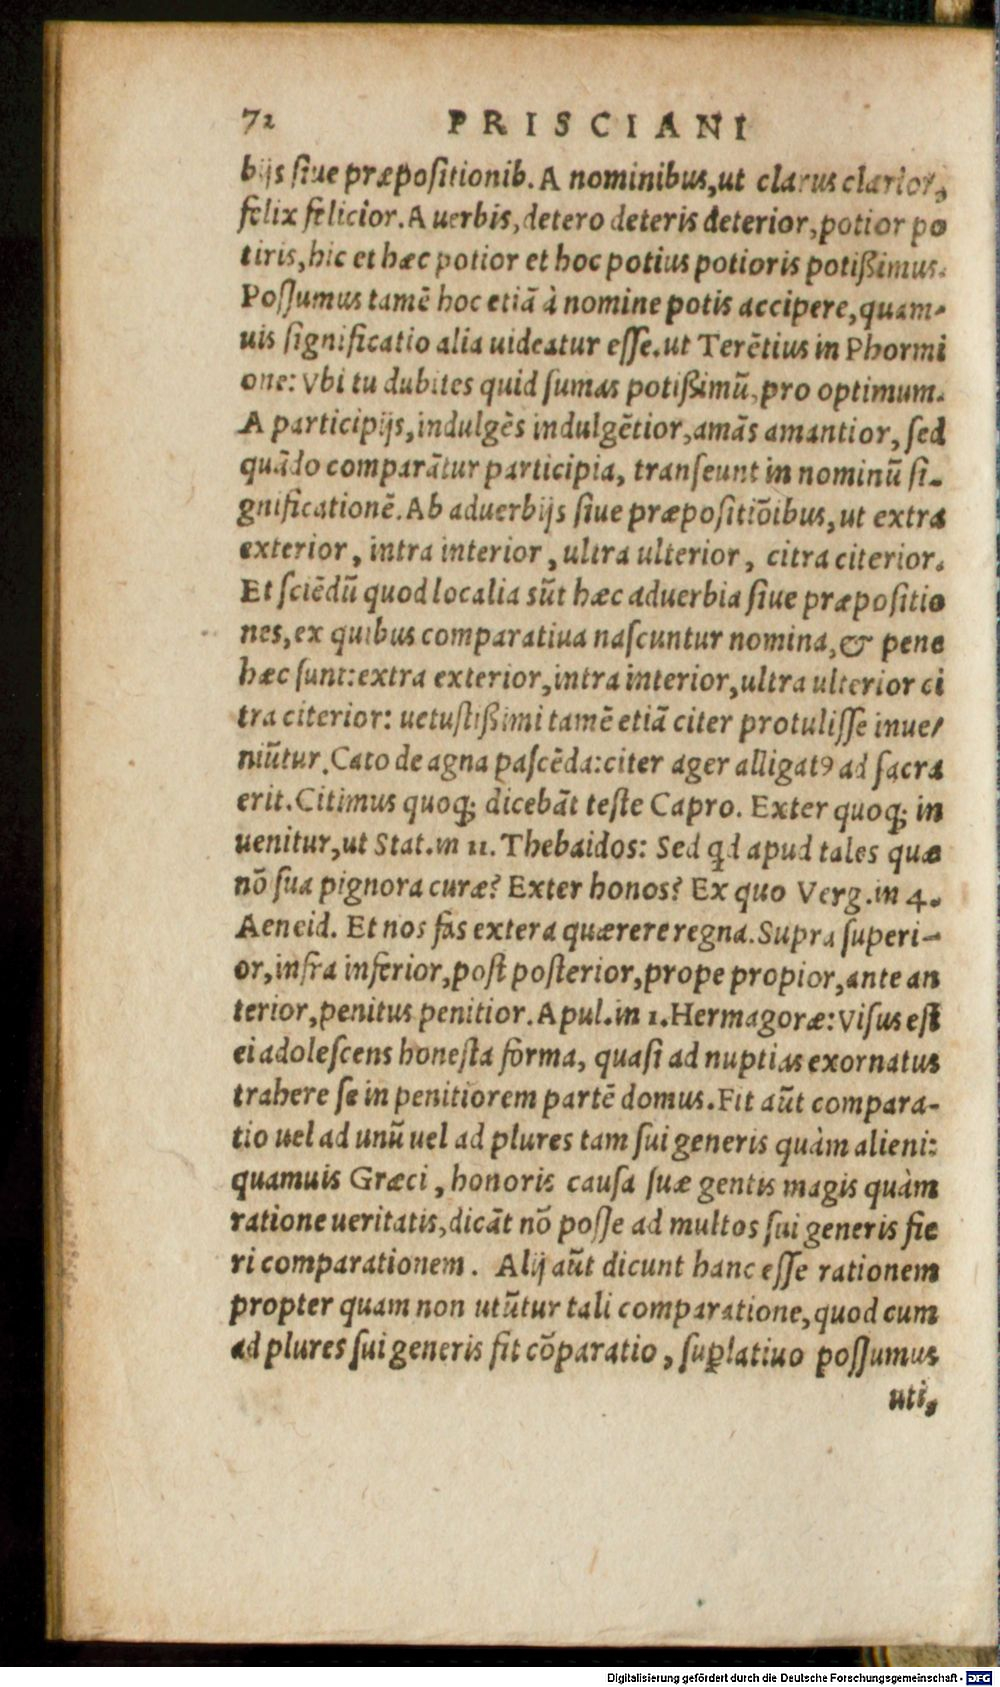 72 PRISCIANI
bijs ſiue præpoſitionib. A nominibus, ut clarus clarior,
felix felicior. A uerbis, detero deteris deterior, potior po
tiris, hic et hæc potior et hoc potius potioris potißimus.
Poſſumus tamē hoc etiā à nomine potis accipere, quam-
uis ſignificatio alia uideatur eſſe. ut Terētius in Phormi
one: Vbi tu dubites quid ſumas potißimū, pro optimum.
A participijs, indulgēs indulgētior, amās amantior, ſed
quādo comparātur participia, tranſeunt in nominū ſi-
gnificationē. Ab aduerbijs ſiue præpoſitiōibus, ut extra
exterior, intra interior, ultra ulterior, citra citerior.
Et ſciēdū quod localia sūt hæc aduerbia ſiue præpoſitio
nes, ex quibus comparatiua naſcuntur nomina, & pene
hæc ſunt: extra exterior, intra interior, ultra ulterior ci
tra citerior: uetuſtißimi tamē etiā citer protuliſſe inue/
niūtur. Cato de agna paſcēda: citer ager alligatꝰ ad ſacra
erit. Citimus quoq; dicebāt teſte Capro. Exter quoq; in
uenitur, ut Stat. in 11. Thebaidos: Sed qd apud tales quæ
nō ſua pignora curæ? Exter honos? Ex quo Verg. in 4.
Aeneid. Et nos fas extera quærere regna. Supra ſuperi-
or, infra inferior, poſt poſterior, prope propior, ante an
terior, penitus penitior. Apul. in 1. Hermagoræ: Viſus eſt
ei adoleſcens honeſta forma, quaſi ad nuptias exornatus
trahere ſe in penitiorem partē domus. Fit aūt compara-
tio uel ad unū uel ad plures tam ſui generis quàm alieni:
quamuis Græci, honoris cauſa ſuæ gentis magis quàm
ratione ueritatis, dicāt nō poſſe ad multos ſui generis fie
ri comparationem. Alij aūt dicunt hanc eſſe rationem
propter quam non utūtur tali comparatione, quod cum
ad plures ſui generis fit cōparatio, ſuꝑlatiuo poſſumus
uti,
Digitalisierung gefördert durch die Deutsche Forschungsgemeinschaft - DFG